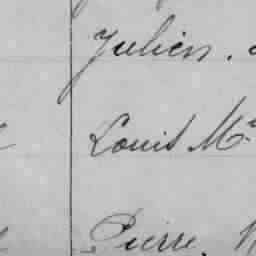 Julien.
Louis M.
Pierre.